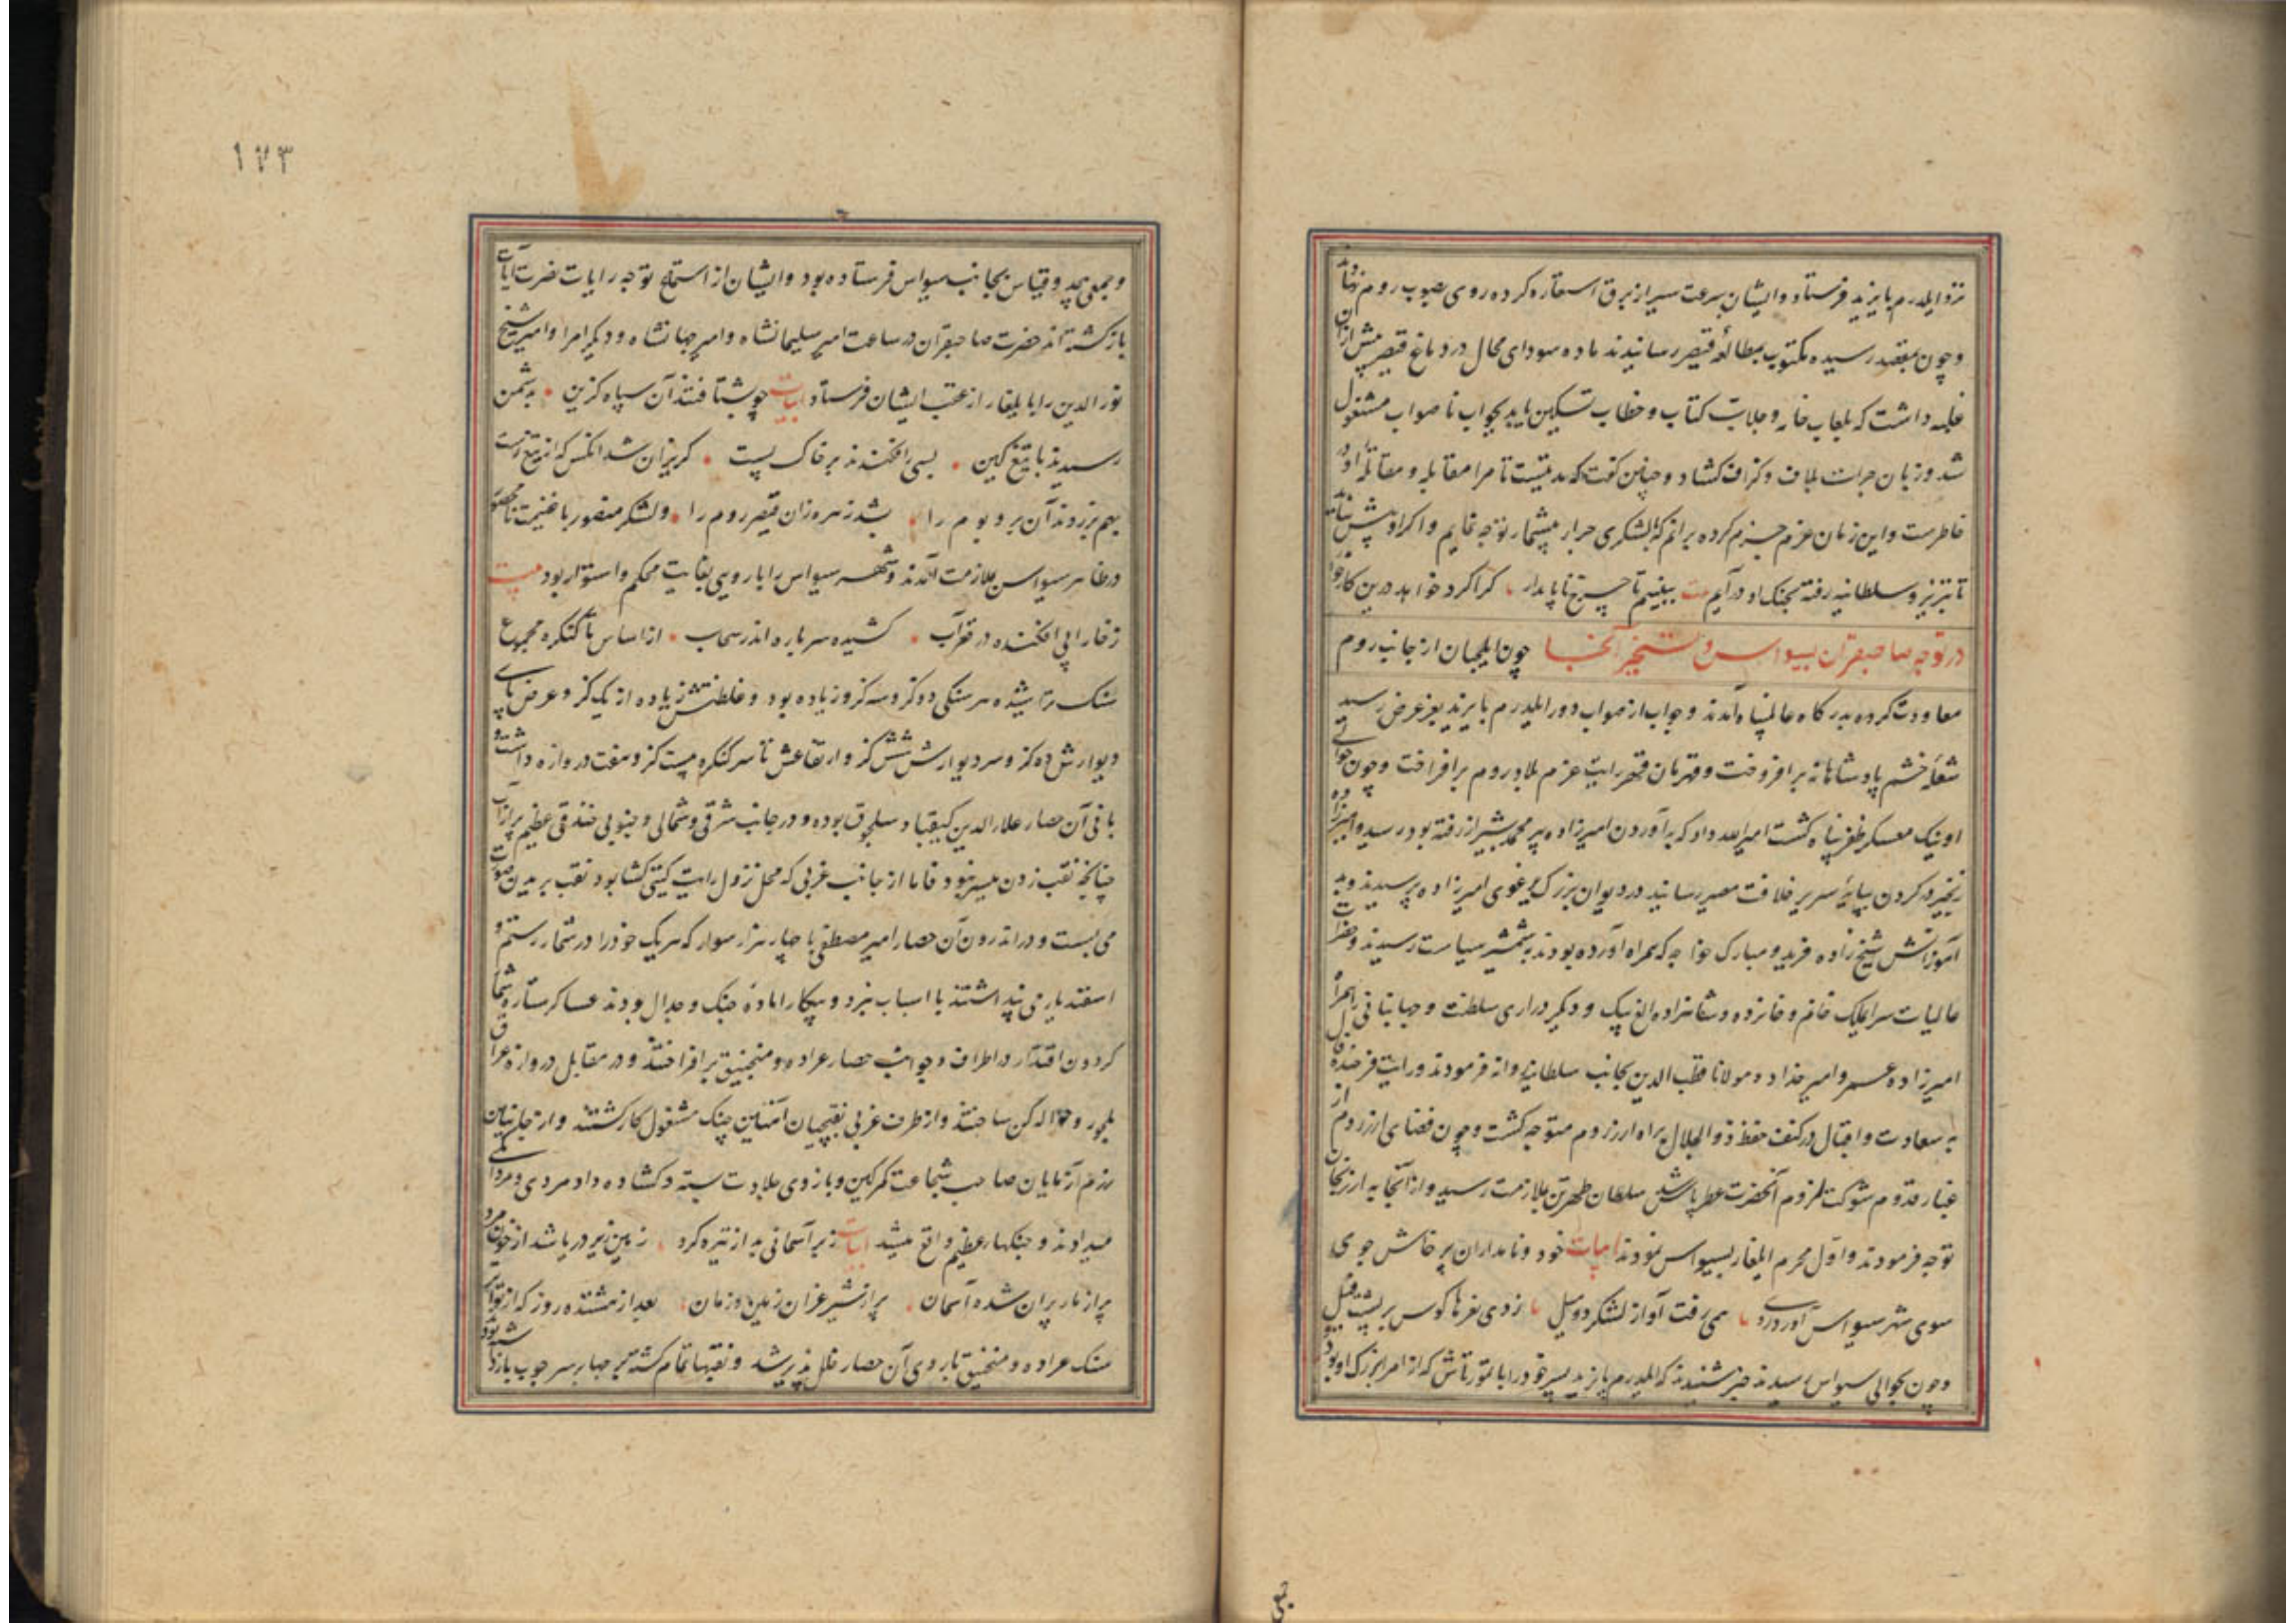 نزد ایلدرم بایزید فرستاد و ایشان بسرعت سیر از برق استعاره کرده روی بصوب روم نهادند
و چون بمقصد رسیده مکتوب بمطالعه قیصر رسانیدند ماده سودای محال در دماغ قیصر پیش ازان
غلبه داشت که بلعاب خامه و جلاب کتاب و خطاب تسکین یابد بجواب ناصواب مشغول
شد و زبان جرات بلاف و گزاف گشاد و چنین گفت که مدتیست تا مرا مقابله و مقاتله او در
خاطرست و این زمان عزم جزم کرده برانم که با لشکری جرار بیشمار توجه نمایم و اگر او پیش نیاید
تا تبریز و سلطانیه رفته بجنک او درآیم بیت ببینیم تا چرخ ناپایدار کرا کرد خواهد درین کار خوار
در توجه صاحبقران بسیواس و تسخیر آنجا چون ایلچیان از جانب روم
معاودت کرده بدرگاه عالمپناه آمدند و جواب از صواب دور ایلدرم بایزید بعز عرض رسید
شعله خشم پادشاهانه برافروخت و قهرمان قهر رایت عزم بلاد روم برافراخت و چون حوالی
اونیک معسکر ظفر پناه گشت امیر الله داد که به آوردن امیرزاده پیر محمد بشیراز رفته بود رسید و امیرزاده
زنجیر در گردن بپایه سریر خلافت مصیر رسانید در دیوان بزرگ یرغوی امیرزاده پرسیدند و بد
آموزانش شیخ زاده فرید و مبارک خواجه که همراه آورده بودند بشمشیر سیاست رسیدند و حضرات
عالیات سرایملک خانم و خانزاده و شاهزاده الغ بیک و دیگر دراری سلطنت و جهانبانی را همراه
امیرزاده عمر و امیر خداد و مولانا قطب الدین بجانب سلطانیه روانه فرمودند و رایت فرخنده فال
به سعادت و اقبال در کنف حفظ ذو الجلال براه ارزروم متوجه گشت و چون فضای ارزروم از
غبار قدوم شوکت لزوم آنحضرت عطر پاش شد سلطان طهرتن بملازمت رسید و از آنجا به ارزنجان
توجه فرمودند و اول محرم ایلغار بسیواس نمودند ابیات خود و نامداران پرخاش جوی
سوی شهر سیواس آورد روی همی رفت آواز لشکر دو میل زدی نعرها کوس بر پشت فیل
و چون بحوالی سیواس رسیدند خبر شنیدند که ایلدرم بایزید پسر خود را با تمورتاش که از امرا بزرگ او بود
جمعی
۱۷۳
و جمعی بیحد و قیاس بجانب سیواس فرستاده بود و ایشان از استماع توجه رایات نصرت آیات
بازگشته اند حضرت صاحبقران در ساعت امیر سلیمانشاه و امیر جهانشاه و دیگر امرا و امیر شیخ
نور الدین را با یلغار از عقب ایشان فرستاد ابیات چو بشتافتند آن سپاه گزین بدشمن
رسیدند با تیغ کین بسی افکندند بر خاک پست گریزان شد انکس که از تیغ رست
بهم برزدند آن بر و بوم را بشد زهره زان قیصر روم را و لشکر منصور با غنیمت نامحصور
در ظاهر سیواس بملازمت آمدند و شهر سیواس را باروی بغایت محکم و استوار بود بیت
ز خارا پی افکنده در قعر آب کشیده سر باره اندر سحاب از اساس تا کنگره مجموع
سنک تراشیده هر سنگی دو گز و سه گز و زیاده بود و غلظتش زیاده از یک گز و عرض پای
دیوارش ده گز و سر دیوارش شش گز و ارتفاعش تا سر کنگره بیست گز و هفت دروازه داشت و
بانی آن حصار علاء الدین کیقباد سلجوق بوده و در جانب شرقی و شمالی و جنوبی خندقی عظیم پر از آب
چنانکه نقب زدن میسر نبود فاما از جانب غربی که محل نزول رایت گیتی گشا بود نقب بر همین صورت
می بست و در اندرون آن حصار امیر مصطفی با چهار هزار سوار که هر یک خود را در شمار رستم و
اسفندیار می پنداشتند با اسباب نبرد و پیکار اماده جنک و جدال بودند عساکر ستاره شمار
گردون اقتدار در اطراف و جوانب حصار عراده و منجنیق برافراختند و در مقابل دروازه عراق
بلجور و حواله کن ساختند و از طرف غربی نقبچیان آهنین چنک مشغول کار گشتند و از جانبین
رزم آزمایان صاحب شجاعت کمر کین و بازوی جلادت بسته و گشاده داد مردی و مردانگی
میدادند و جنکهاء عظیم واقع میشد ابیات زبر آسمانی بد از تیره گرد زمین زیر دریا شد از خون مرد
پر از مار پران شده آسمان پر از شیر غران زمین و زمان بعد از هشتده روز که از تواتر
سنک عراده و منجنیق باروی آن حصار خلل پذیر شد و نقبها تمام گشته بر چهار سر چوب بازداشته بودند